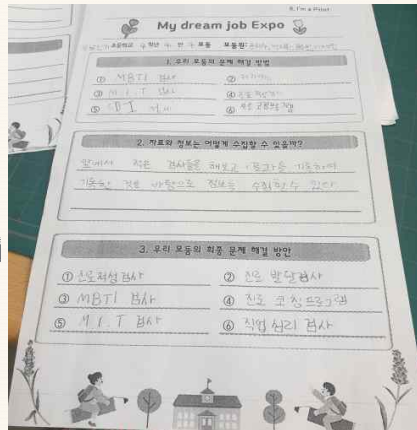 6. I'm a Pilot
My dream job Expo
초등학교 4 학년 반 4 모둠 모둠원:
1. 우리 모둠의 문제 해결 방법
① MBTI 검사
②
③ M.I.T 검사
④
⑤
⑥
2. 자료와 정보는 어떻게 수집할 수 있을까?
앞에서 적은 검사들을 해보고 결과를 기록하여
기록한 것을 바탕으로 정보를 수집할 수 있다
3. 우리 모둠의 최종 문제 해결 방안
① 진로적성검사
② 진로 발달검사
③ MBTI 검사
④ 진로 코칭프로그램
⑤ M.I.T 검사
⑥ 직업심리 검사